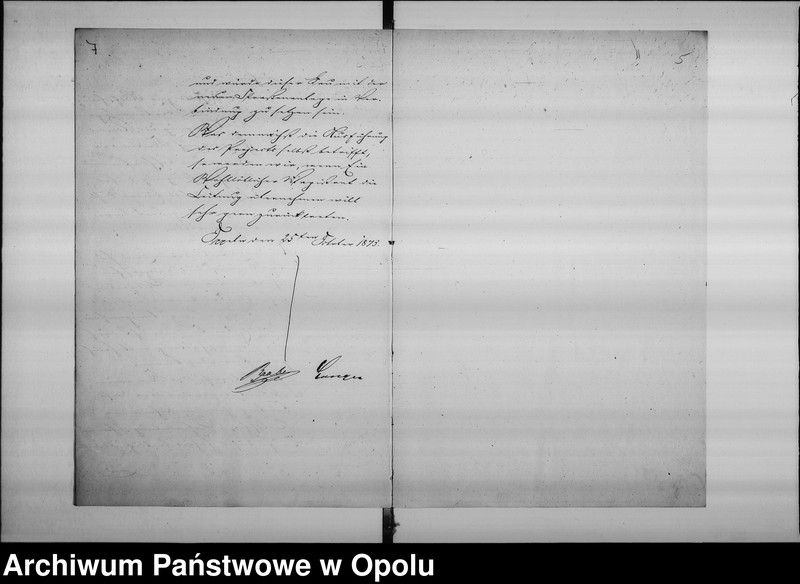 7
5
und würde dieser Bau mit der
neuen Straßenanlage in Ver-
bindung zu setzen sein.
Was demnächst die Ausführung
des Projects selbst betrifft,
so werden wir, wenn Ein
Wohllöblicher Magistrat die
Leitung übernehmen will
sehr gern zurücktreten.
Oppeln den 25ten October 1875.
Archiwum Państwowe w Opolu